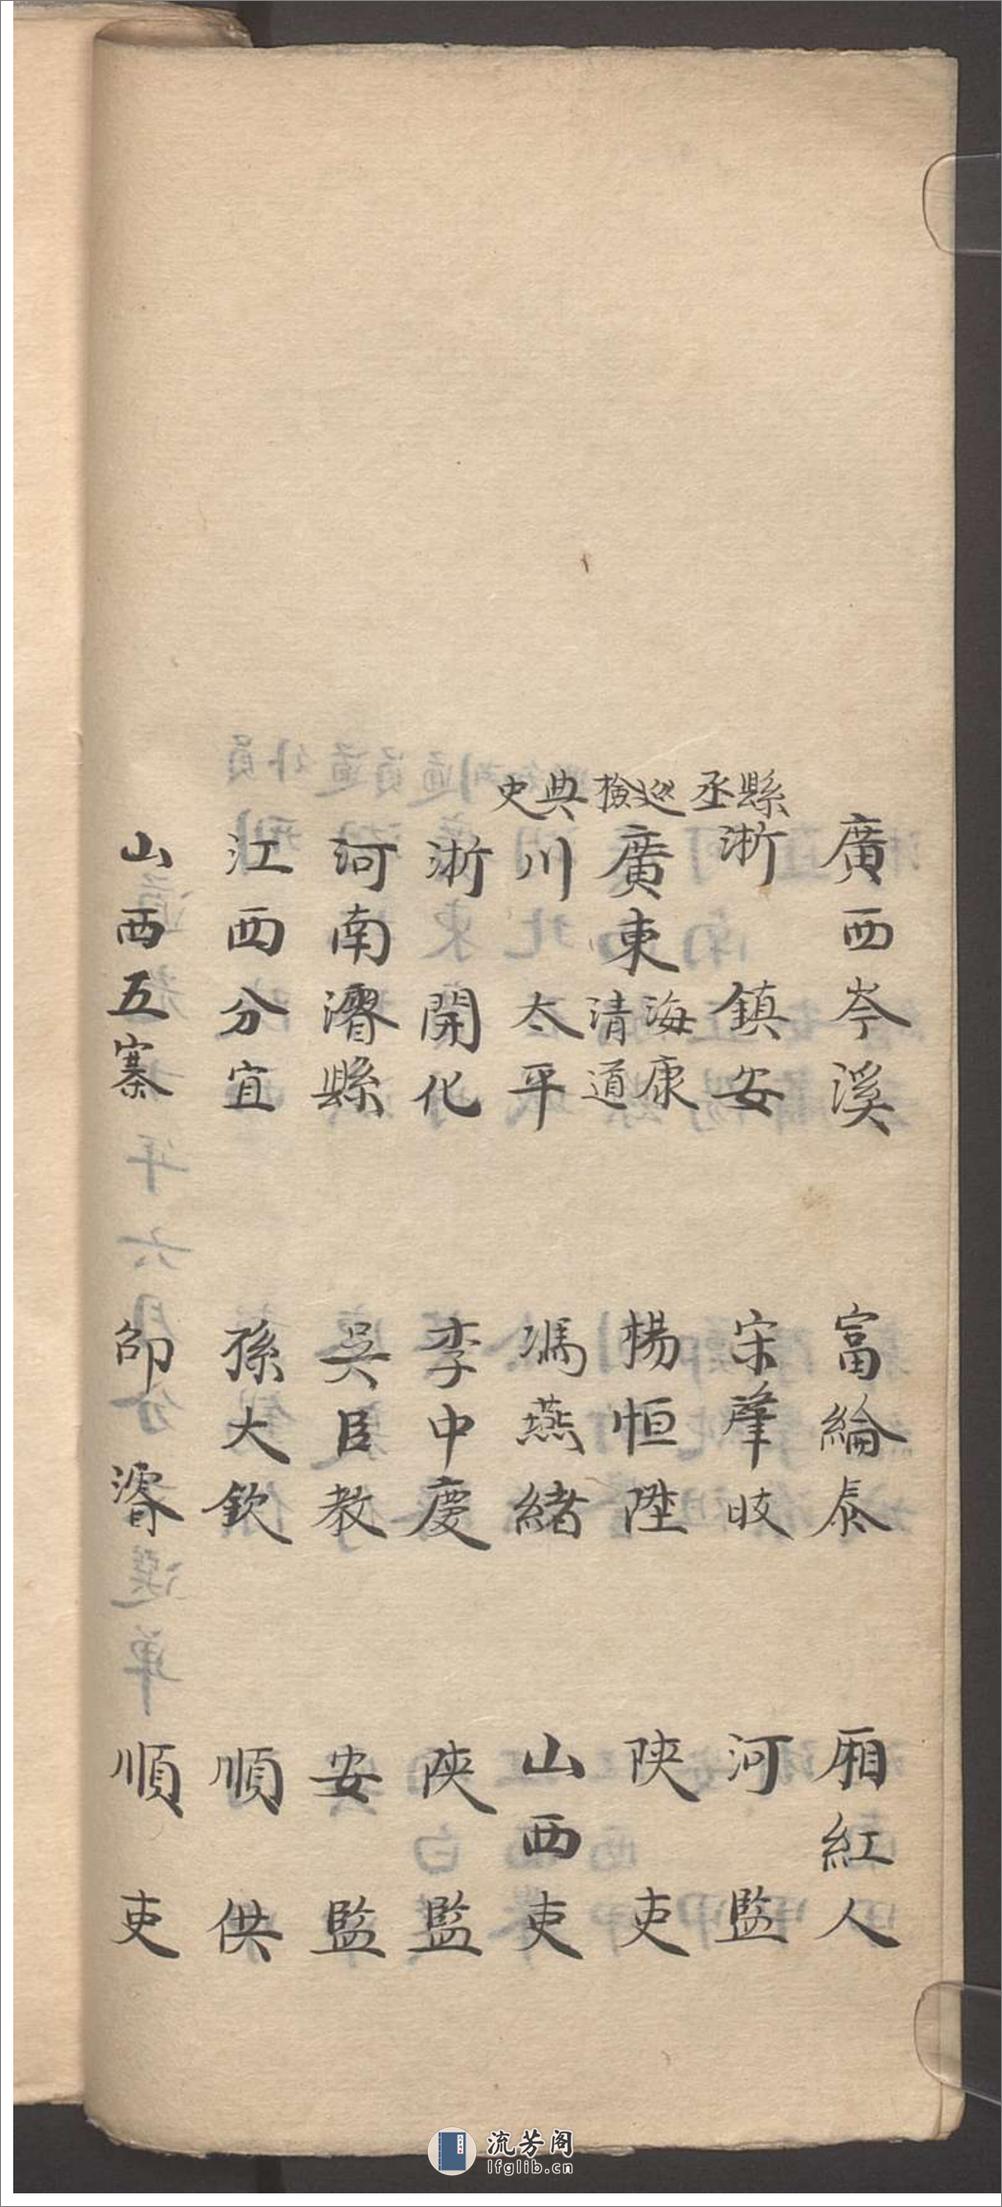 廣西岑溪 富綸泰 廂紅人
縣丞 浙 鎮安 宋肇岐 河 監
巡檢 廣東海康清道 楊恒陞 陝 吏
典史 川 太平 馮燕緒 山西吏
浙 開化 李中慶 陝 監
河南濬縣 吳臣教 安 監
江西分宜 孫大欽 順 供
山西五寨 邵濬 順 吏
流芳阁
lfglib.cn